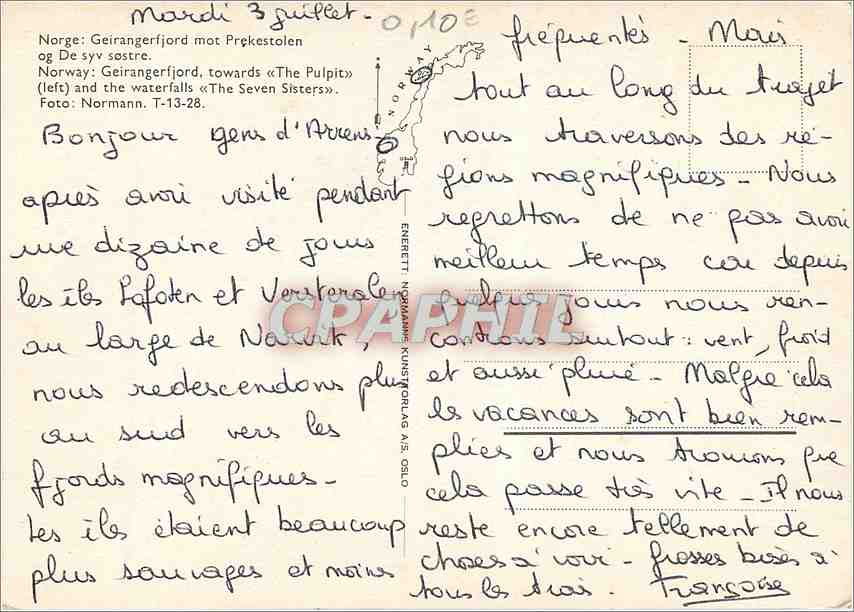 Mardi 3 juillet -
0,10€
Norge: Geirangerfjord mot Prekestolen
og De syv søstre.
Norway: Geirangerfjord, towards «The Pulpit»
(left) and the waterfalls «The Seven Sisters».
Foto: Normann. T-13-28.
NORWAY
Bonjour gens d'Arrens -
après avoir visité pendant
une dizaine de jours
les îles Lofoten et Versteralen
au large de Narvik,
nous redescendons plus
au sud vers les
fjords magnifiques -
Les îles étaient beaucoup
plus sauvages et moins
ENERETT: NORMANNS KUNSTFORLAG A/S. OSLO
fréquentés - Mais
tout au long du trajet
nous traversons des ré-
gions magnifiques - Nous
regrettons de ne pas avoir
meilleur temps car depuis
quelques jours nous ren-
controns surtout : vent, froid
et aussi pluie - Malgré cela
les vacances sont bien rem-
plies et nous trouvons que
cela passe très vite - Il nous
reste encore tellement de
choses à voir - Grosses bises à
tous les trois. Françoise
CPAPHIL